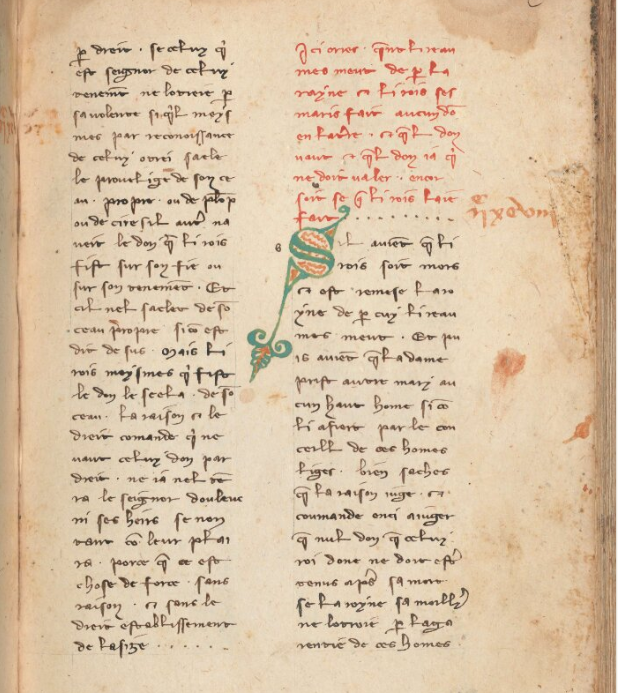 ꝑ dreit · se celuy q̄
est seignor de celuy
tenemēt ne lotreie ꝑ
sa volente si q̄l meys
mes par reconoissance
de celuy otrei saele
le priuelige de son ce
au · propre · ou de plōp
ou de cire sil aut̄ na
veit le don q̄ li rois
fist sur son fie ou
sur son tenemēt · Et
cil nel saelet de sō
ceau propre si cō est
dit de sus · Mais li
rois meysmes q̄ fist
le don le seela · de sō
ceau · la raison et le
dreit comande q̄ ne
vaut celuy don par
dreit · ne ia nel tē
ra le seignor dou leuc
ni ses heirs se non
tant cō leur plai
ra · porce q̄ ce est
chose de force · sans
raison · et sans le
dreit establissement
de lasize
Ici ores · q̄nt li reau
mes meut de ꝑ la
rayne et li rois ses
maris fait aucun dō
en la t̄re · et q̄l don
vaut · et q̄l don ia q̄
ne doit valer · encor
soit se q̄ li rois lait
fait
Sil auiēt q̄ li
rois soit mors
et est remese la ro
yne de ꝑ cuy li reau
mes meut · Et pu
is auiēt q̄ la dame
prist autre mary au
cun haut home si cō
li afiert par le con
ceill de ces homes
liges · bien saches
q̄ la raison iuge · et
coumande enci a iuger
q̄ nul don q̄ celuy
roi done ne doit est̄
tenus apˢ sa mort
se la royne sa moillˀ
ne lotroie ꝑ laga
rentie de ces homes ·